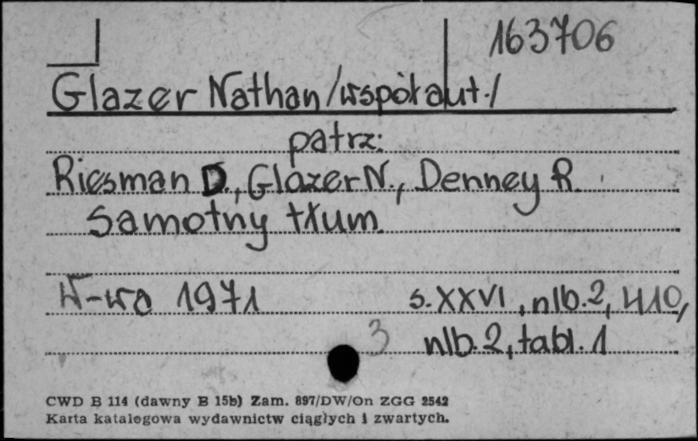 163706
Glazer Nathan /współaut./
patrz:
Riesman D., Glazer N., Denney R.
Samotny tłum.
W-wa 1971 s. XXVI, nlb. 2, 410,
3 nlb. 2, tabl. 1
CWD B 114 (dawny B 15b) Zam. 897/DW/On ZGG 2542
Karta katalogowa wydawnictw ciągłych i zwartych.